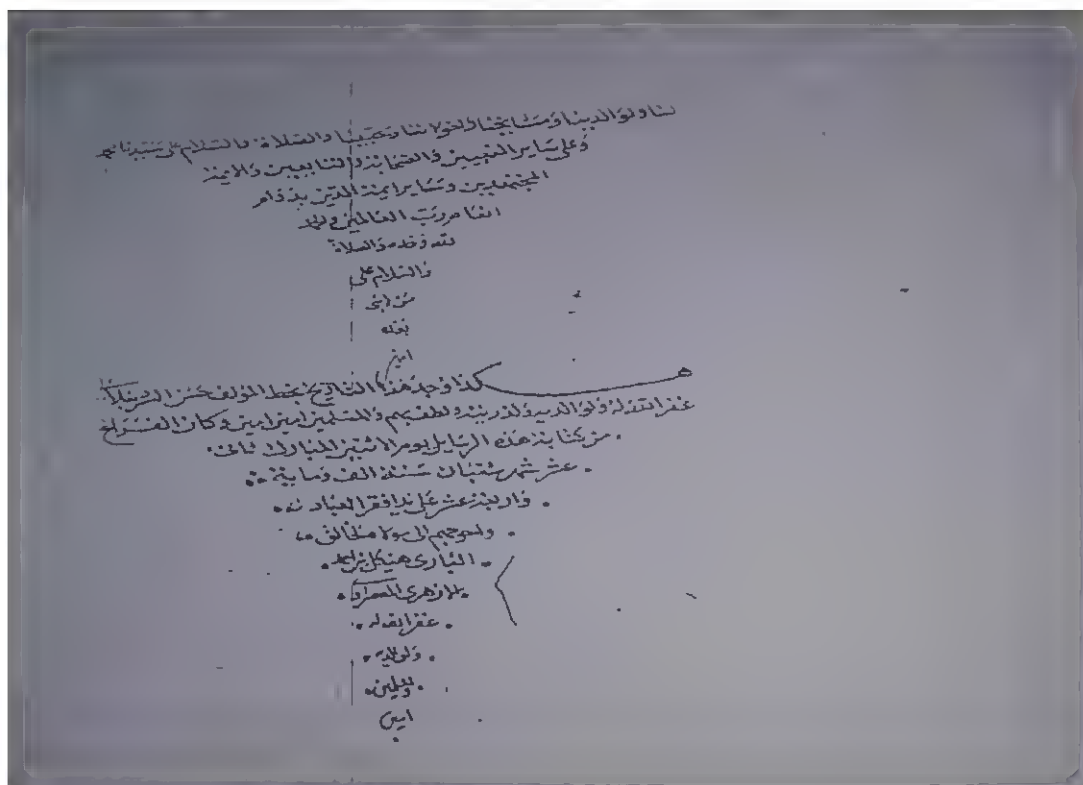 لنا ولوالدينا ومشايخنا واخواننا ومحبينا والصلاة والسلام على سيدنا محمد
وعلى ساير النبيين والصحابة والتابعين والايمة
المجتهدين وساير ايمة الدين بدوام
انعام رب العالمين والحمد
لله وحده والصلاة
والسلام على
من لا نبى
بعده
امين
هكذا وجد هذا التاريخ بخط المؤلف حسن الشرنبلالى
غفر الله له ولوالديه ولذريته ولطف بهم والمسلمين امين امين وكان الفراغ
من كتابة هذه الرسايل يوم الاثنين المبارك ثانى
عشر شهر شعبان سنة الف ومايية
واربعة عشر على يد افقر العباد
واحوجهم الى مولاه الخالق
البارى هيكل بن احمد
الازهرى
غفر الله له
ولوالديه
وللمسلمين
امين